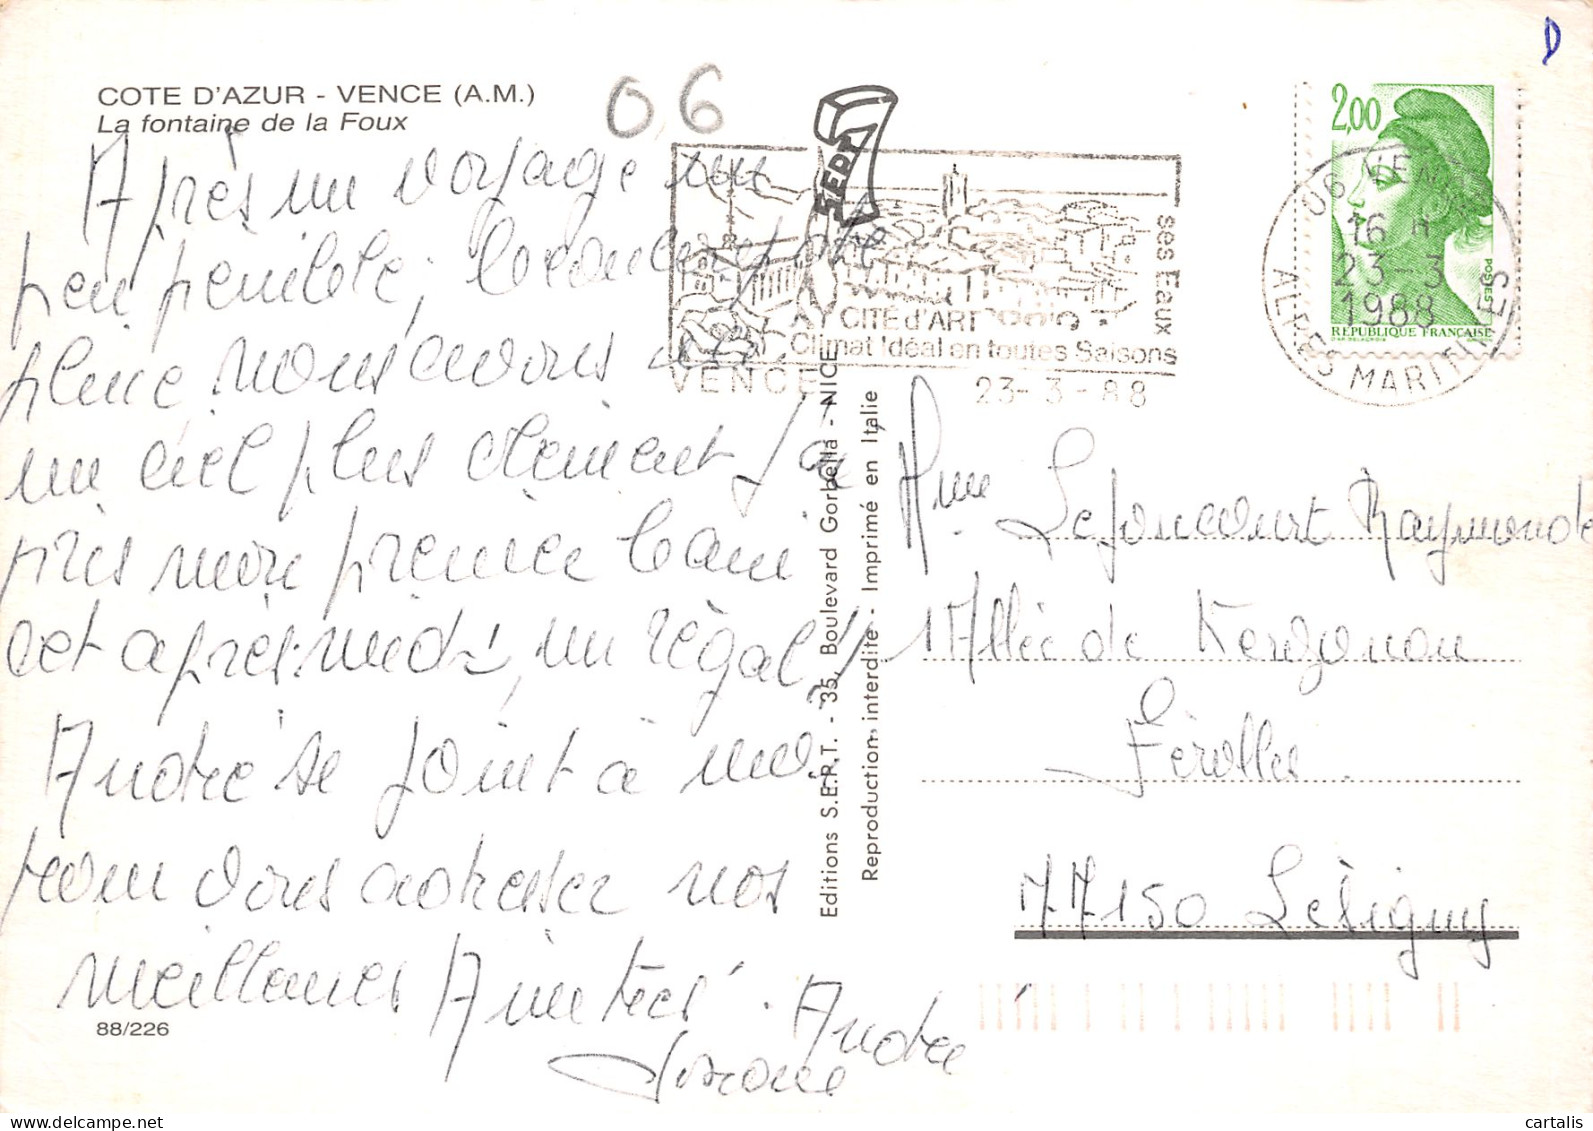 COTE D'AZUR - VENCE (A.M.)
La fontaine de la Foux
06
D
Après un voyage un
peu pénible,
pluie nous avons
un ciel plus clément j'ai
pris mon premier bain
cet après-midi, un régal !
André se joint à moi
pour vous adresser nos
meilleures Amitiés. André
Simone
88/226
SEPT
ses Eaux
CITÉ d'ART
Climat Idéal en toutes Saisons
VENCE
23-3-88
Editions S.E.P.T. - 35, Boulevard Gorbella - NICE
Reproduction interdite - Imprimé en Italie
2,00
POSTES
RÉPUBLIQUE FRANÇAISE
06 VENCE
16 H
23-3
1988
ALPES MARITIMES
Mme Lejoncourt Raymonde
17 Allée de Kergonan
Férolles
77150 Lésigny
cartalis